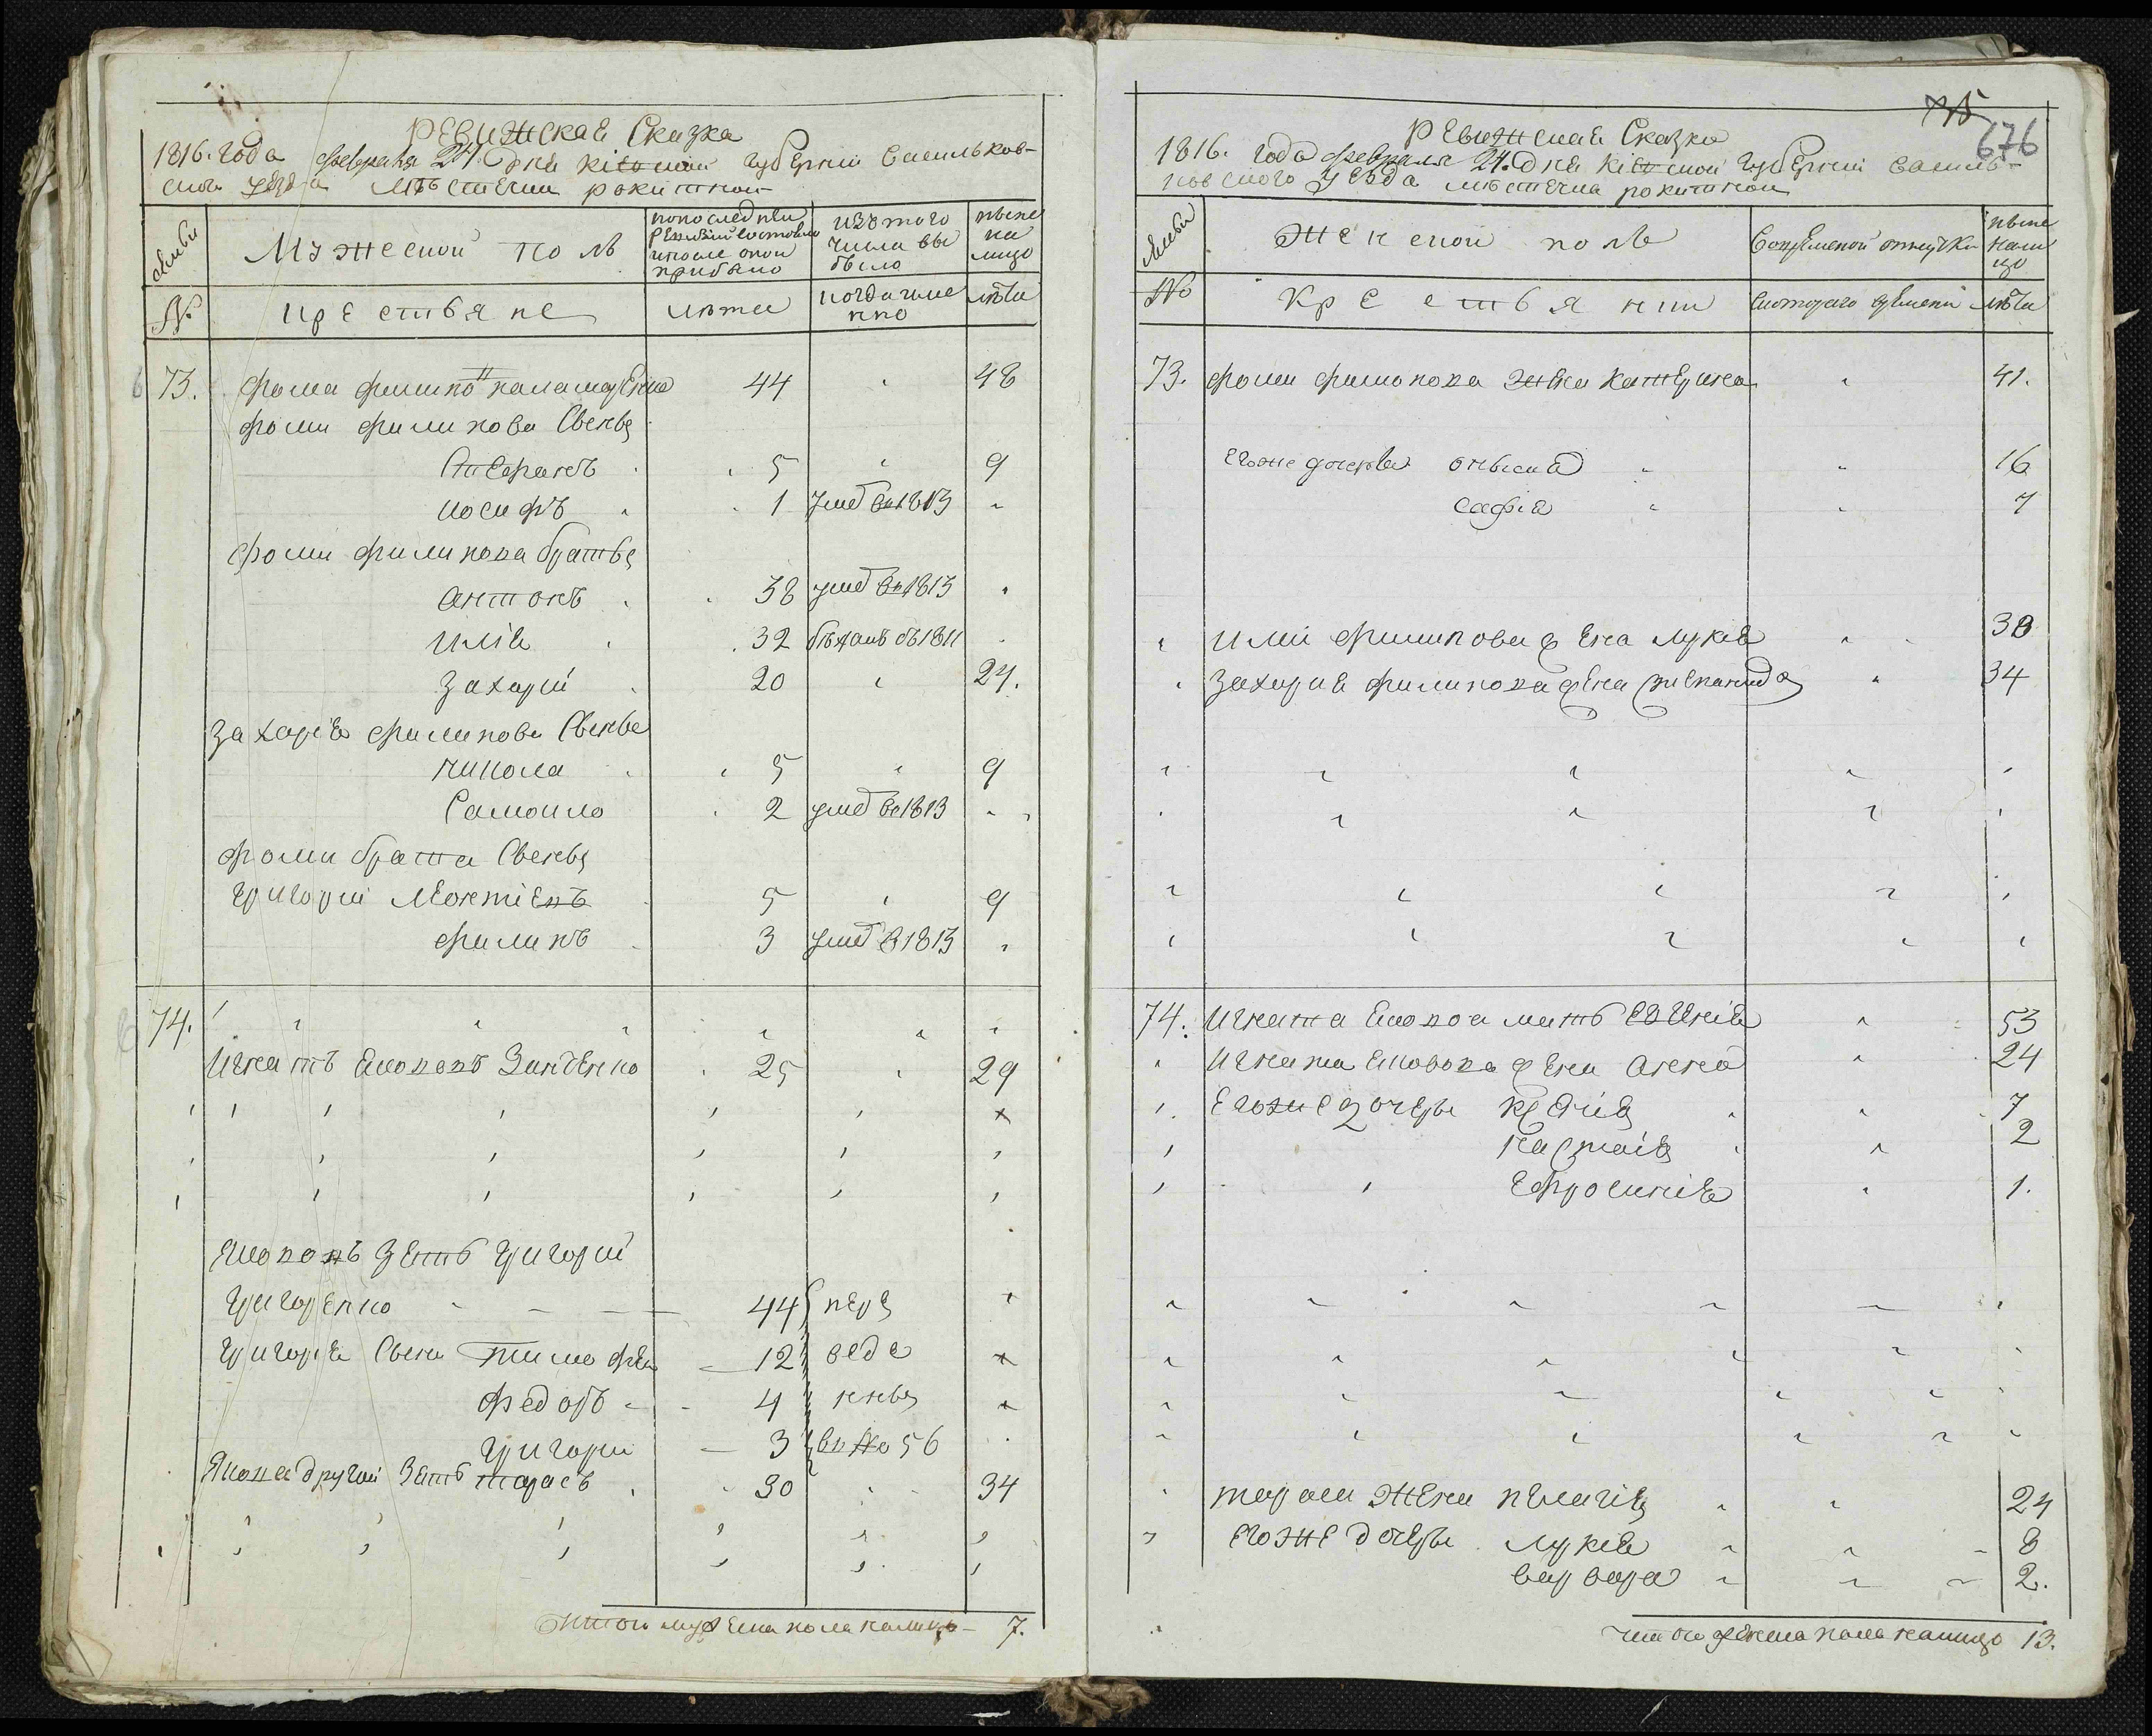 Ревижская Сказка
1816. года февраля 24. дня Кіевской губерніи Васильков-
ского уезда мѣстечка рокитной
семьи
Мужеской полъ
попоследней ревизіи состояло ипосле оной прибыло
изтого числа выбыло
ныне на лицо
№
крестьяне
лета
когда имянно
лѣта
73. фома филипо" паламаренко 44 48
фоми филипова Синовя
Стефанъ 5 9
иосифъ 1 умеѣ въ 1813
фоми филипова братья
антонъ 38 умеѣ въ 1813
илія 32 бѣжалъ въ 1811
захарій 20 24.
захарія филипова Синове
никола 5 9
Самоило 2 умеѣ въ 1813
фоми брата Синовя
григорій Моктіевъ 5 9
филипъ 3 умеѣ в 1813
74.
игнатъ Якововъ Зинченко 25 29
Яковавъ Зять григорій
григоренко 44 пере
григорія Сини тимофей 12 веде
федоръ 4 нния
григорій 3 во № 56
Якова другій Зять тарасъ 30 34
Итого мужеска пола налицо 7.
715
676
Ревижская Сказка
1816. года февраля 24. дня Кіевской губерніи Василь-
ковского уезда мѣстечка рокитной
семьи
Женской полъ
Вовременной отлучки
ныне налицо
№
Крестьянки
Скотораго времени
лѣта
73. фоми филипова жена катерина 41.
егоже дочерѣ онысия 16
софія 7
иліи филипова жена лукія 38
захарія филипова жена степанида 34
74. игната Яковова мать Евгенія 53
игната Яковова жена анна 24
Егоже дочери 7
2
Ефросинія 1.
тараса жена пелагія 24
егоже дочери лукія 8
варвара 2.
итого женска пола налицо 13.